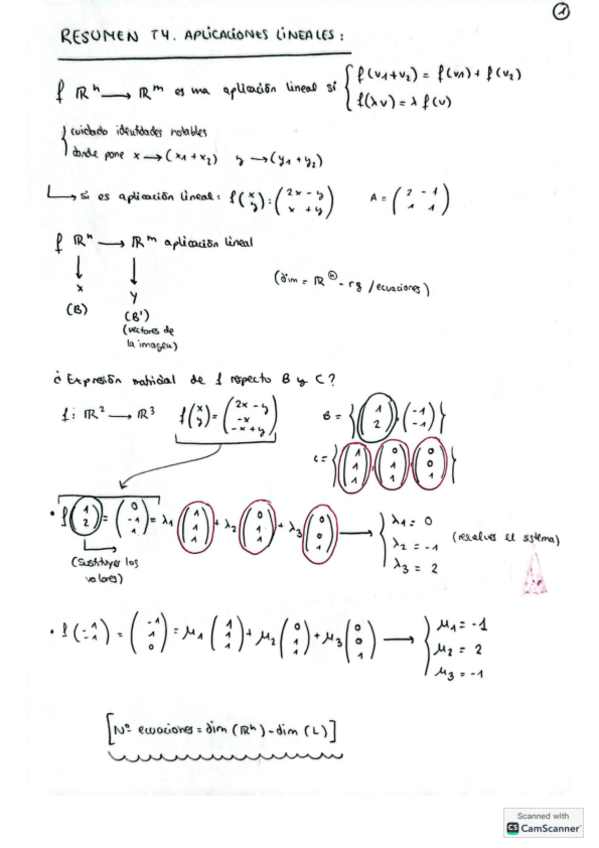 1
RESUMEN T4. APLICACIONES LINEALES:
f ℝⁿ → ℝᵐ es una aplicación lineal si { f(v₁+v₂) = f(v₁) + f(v₂)
f(λv) = λ f(v)
cuidado identidades notables
donde pone x → (x₁+x₂) y → (y₁+y₂)
↳ si es aplicación lineal: f(x y) = (2x - y x + y) A = (2 -1 1 1)
f ℝⁿ → ℝᵐ aplicación lineal
↓ ↓
x y
(dim = ℝⁿ - rg / ecuaciones)
(B) (B')
(vectores de
la imagen)
¿Expresión matricial de f respecto B y C?
f: ℝ² → ℝ³ f(x y) = (2x - y -x -x + y) B = {(1 2), (-1 -1)}
C = {(1 1 1), (0 1 1), (0 0 1)}
• f(1 2) = (0 -1 1) = λ₁(1 1 1) + λ₂(0 1 1) + λ₃(0 0 1) → { λ₁ = 0 λ₂ = -1 λ₃ = 2 (resuelves el sistema)
(sustituyes los
valores)
• f(-1 -1) = (-1 1 0) = μ₁(1 1 1) + μ₂(0 1 1) + μ₃(0 0 1) → { μ₁ = -1 μ₂ = 2 μ₃ = -1
[Nº ecuaciones = dim (ℝⁿ) - dim (L)]
Scanned with
CS CamScanner